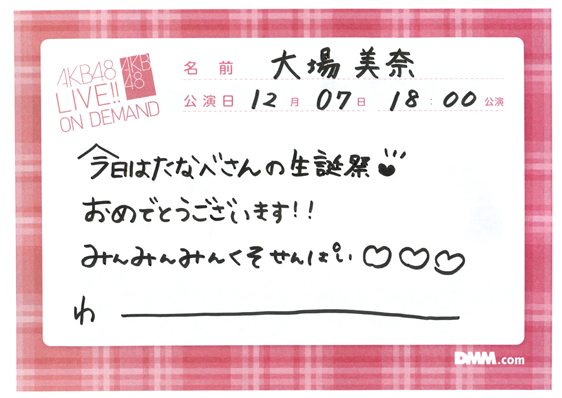 AKB48
LIVE!!
ON DEMAND
AKB
48
名前 大場美奈
公演日 12月07日 18:00公演
今日はたなべさんの生誕祭
おめでとうございます!!
みんみんみんくそせんぱい♡♡♡
わ
DMM.com